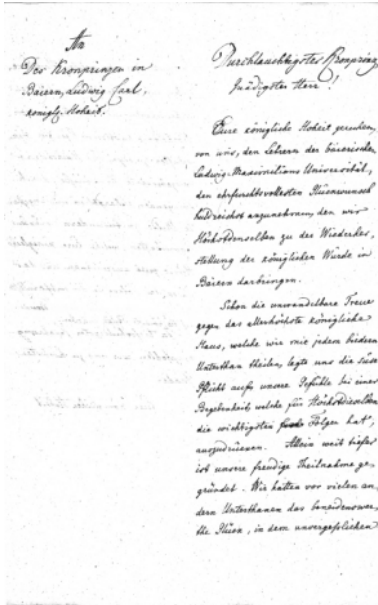 An
Des Kronprinzen in
Baiern, Ludwig Carl,
königl. Hoheit.
Durchlauchtigster Kronprinz
Gnädigster Herr!
Eure königliche Hoheit geruhen,
von uns, den Lehrern der baierischen
Ludwig-Maximilians Universität,
den ehrfurchtsvollesten Glückwunsch
huldreichst anzunehmen, den wir
Höchstdenselben zu der Wiederher,
stellung der königlichen Würde in
Baiern darbringen.
Schon die unwandelbare Treue
gegen das allerhöchste königliche
Haus, welche wir mit jedem biedern
Unterthan theilen, legte uns die süße
Pflicht auf, unsere Gefühle bei einer
Begebenheit, welche für Höchstdieselben
die wichtigsten Folgen hat,
auszudrücken. Allein weit tiefer
ist unsere freudige Theilnahme ge,
gründet. Wir hatten vor vielen an,
dern Unterthanen das beneidenswer,
the Glück, in dem unvergeßlichen